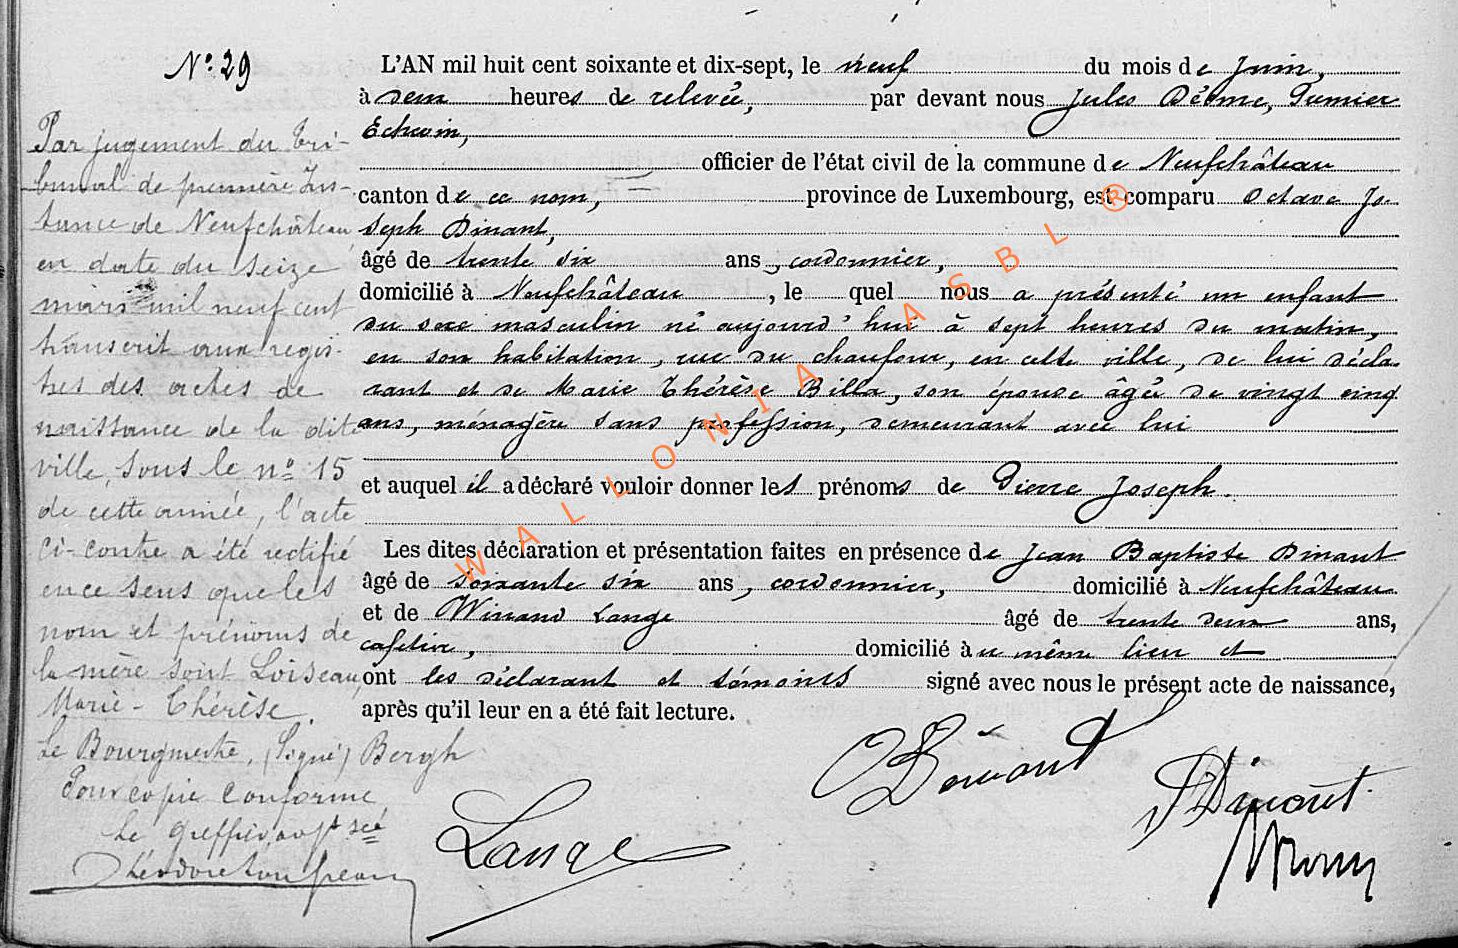 N° 29
L'AN mil huit cent soixante et dix-sept, le neuf du mois de Juin,
à deux heures de relevée, par devant nous Jules Déome, Premier
Echevin,
officier de l'état civil de la commune de Neufchâteau
canton de ce nom, province de Luxembourg, est comparu Octave Jo-
seph Dinant,
âgé de trente six ans, cordonnier,
domicilié à Neufchâteau, le quel nous a présenté un enfant
du sexe masculin né aujourd'hui à sept heures du matin,
en son habitation, rue du chaufour, en cette ville, de lui décla-
rant et de Marie Thérèse Billa, son épouse âgée de vingt cinq
ans, ménagère sans profession, demeurant avec lui
et auquel il a déclaré vouloir donner les prénoms de Pierre Joseph.
Les dites déclaration et présentation faites en présence de Jean Baptiste Dinant
âgé de soixante six ans, cordonnier, domicilié à Neufchâteau
et de Winand Lange âgé de trente deux ans,
cafetier, domicilié à u même lieu et
ont les déclarant et témoins signé avec nous le présent acte de naissance,
après qu'il leur en a été fait lecture.
Par jugement du Tri-
bunal de première Ins-
tance de Neufchâteau,
en date du seize
mars mil neuf cent
transcrit aux regis-
tres des actes de
naissance de la dite
ville, sous le n° 15
de cette année, l'acte
ci-contre a été rectifié
en ce sens que les
nom et prénoms de
la mère sont Loiseau,
Marie-Thérèse.
Le Bourgmestre, (Signé) Bergh
Pour copie conforme,
Le greffier
ODinant
JBDinant
Lange
WALLONIA ASBL ®